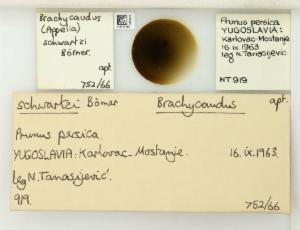 Brachycaudus
(Appelia)
schwartzi
Börner.
apt.
752/66
Prunus persica
YUGOSLAVIA:
Karlovac-Mostanje
16.ix.1963
leg N.Tanasijević
NT919
schwartzi Börner Brachycaudus apt.
Prunus persica.
YUGOSLAVIA: Karlovac-Mostanje. 16.ix.1963.
leg N.Tanasijević.
919.
752/66